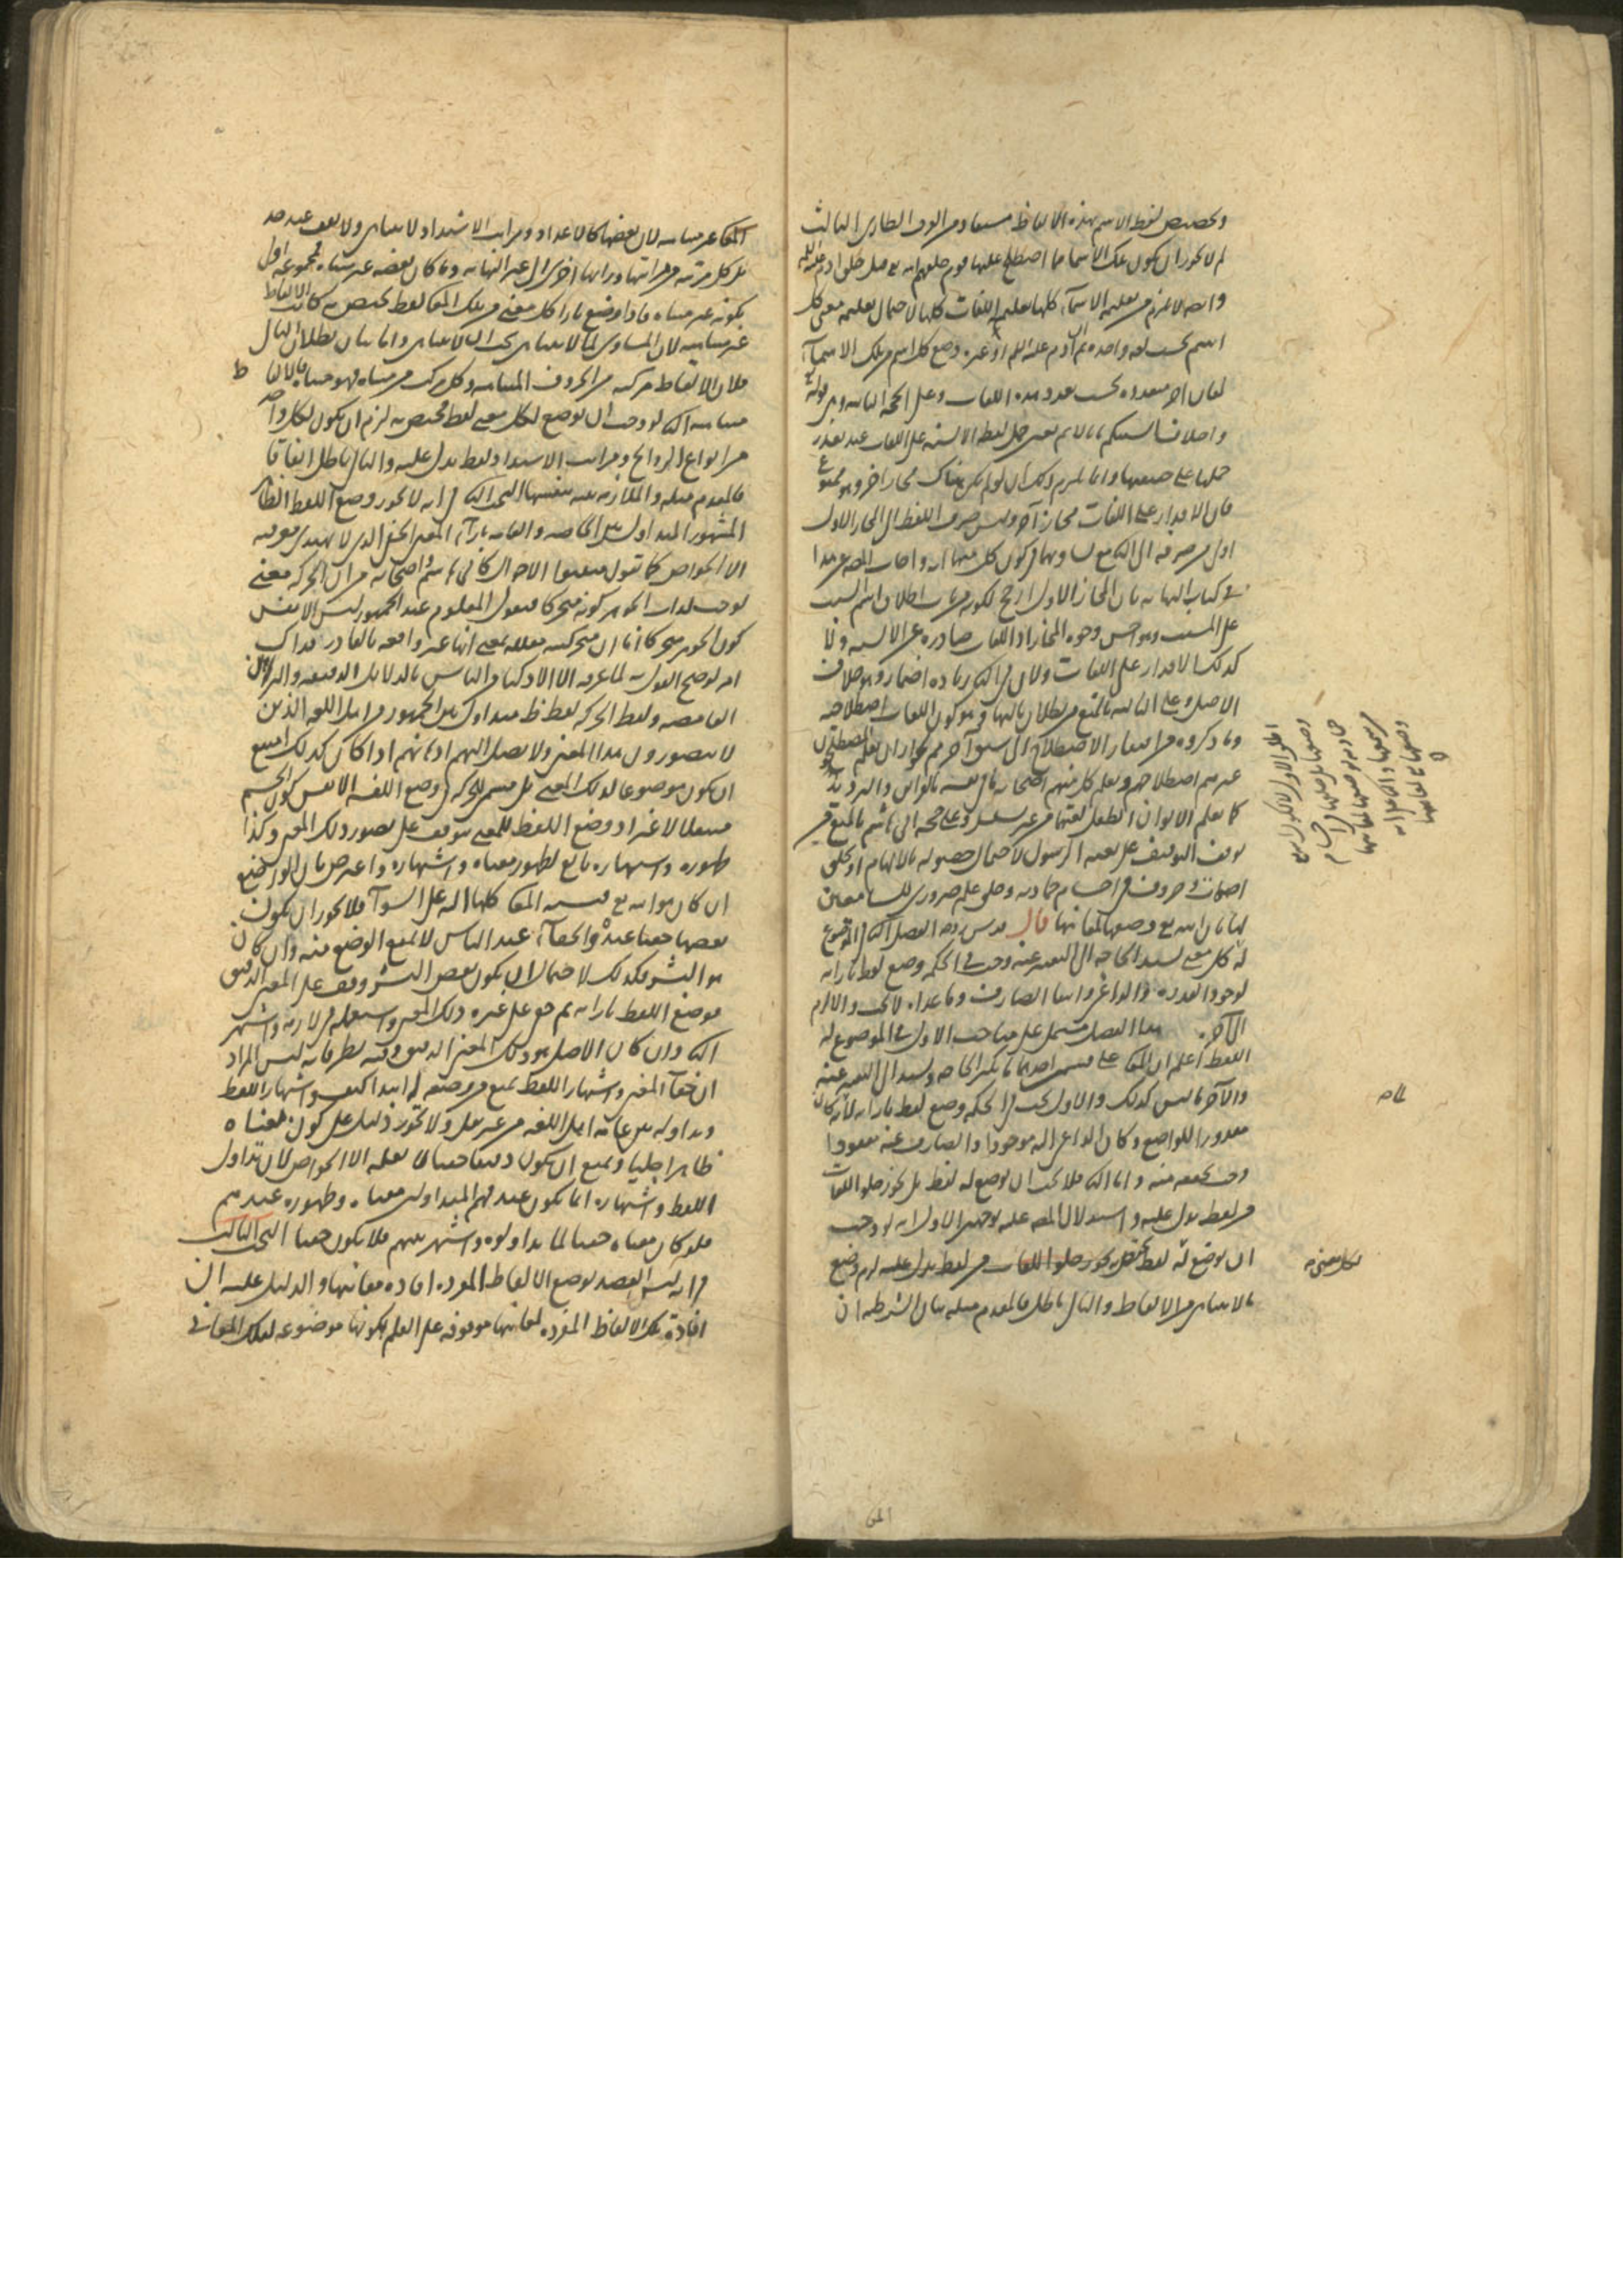 وتخصيص لفظ الاسم بهذه الالفاظ مستفاد من العرف الطارى الثالث
لم لا يجوز ان يكون تلك الاسما مما اصطلح عليها قوم خلقهم الله تع قبل خلق ادم عليه السلم
وانه لا يلزم من تعليمه الاسمآء كلها تعليمه اللغات كلها لاحتمال تعليمه معنى كل
اسم بحسب لغة واحدة ثم ان آدم عليه السلم او غيره وضع كل اسم من تلك الاسمآء
لمعان اخر متعددة بحسب تعدد هذه اللغات وعلى الحجة الثانية وهي قوله تع
واختلاف السنتكم بانا لا نم تعين حمل لفظ الالسنة على اللغات عند تعذر
حملها على حقيقتها وانما يلزم ذلك ان لو لم يكن هناك مجاز اخر وهو ممنوع
فان الاقدار على اللغات مجاز آخر وليس صرف اللفظ الى المجاز الاول
اولى من صرفه الى الثاني لتساويهما في كون كل منهما آية واجاب المص عن هذا
في كتاب النهاية بان المجاز الاول ارجح لكونه من باب اطلاق اسم السبب
على المسبب وهو احسن وجوه المجاز اذ اللغات صادرة عن الالسنة ولا
كذلك الاقدار على اللغات ولان في الثاني زيادة اضمار وهو خلاف
الاصل وعلى الثالثة بالمنع من بطلان تاليها وهو كون اللغات اصطلاحية
وما ذكروه من افتقار الاصطلاح الى سبق آخر مم لجواز ان يعلم المصطلحون
غيرهم اصطلاحهم ويعلم كل منهم اصحابه ما في نفسه بالقراين والترديد
كما يعلم الابوان الطفل لغتهما من غير تسلسل وعلى حجة ابي هاشم بالمنع من
توقف التوقيف على بعثة الرسول لاحتمال حصوله بالالهام او بخلق
اصوات وحروف في اجسام جمادية وخلق علم ضروري للسامعين
لها بان الله تع وضعها لمعانيها قال قدس روحه الفصل الثاني في الموضوع
له كل معنى تشتد الحاجة الى التعبير عنه وجب في الحكمة وضع لفظ بازائه
لوجود القدرة والداعي وانتفا الصارف وما عداه لا يجب والا لزم
الى آخره هذا الفصل يشتمل على مباحث الاول في الموضوع له
اللفظ اعلم ان المعاني على قسمين احدهما ما تكثر الحاجة وتشتد الى التعبير عنه
والآخر ما ليس كذلك والاول يجب في الحكمة وضع لفظ بازائه لانه كان
مقدورا للواضع وكان الداعي اليه موجودا والصارف عنه مفقودا
وجب تحققه منه واما الثاني فلا يجب ان يوضع له لفظ بل يجوز خلو اللغات
من لفظ يدل عليه واستدلال المص عليه بوجهين الاول انه لو وجب
ان يوضع له لفظ يختص به ولم يجز خلو اللغات من لفظ يدل عليه لزم وضع
ما لا يتناهى من الالفاظ والتالى باطل فالمقدم مثله بيان الشرطية ان
لكل معنى
المعا
المعاني غير متناهية لان بعضها كالاعداد ومراتب الاشتداد لا يتناهى ولا يقف عند حد
بل كل مرتبة من مراتبها وراءها اخرى الى غير النهاية وما كان بعضه غير متناه فمجموعه اولى
بكونه غير متناه فاذا وضع بازا كل معنى من تلك المعاني لفظ يختص به كانت الالفاظ
غير متناهية لان المساوى لما لا يتناهى يجب ان لا يتناهى واما بيان بطلان التالى
فلان الالفاظ مركبة من الحروف المتناهية وكل مركب من متناه فهو متناه فالالفاظ
متناهية الثاني لو وجب ان يوضع لكل معنى لفظ مختص به لزم ان يكون لكل واحد
من انواع الروايح ومراتب الاشتداد لفظ يدل عليه والتالى باطل اتفاقا
فالمقدم مثله والملازمة بينة بنفسها البحث الثاني في انه لا يجوز وضع اللفظ الظاهر
المشهور المتداول بين الخاصة والعامة بازآء المعنى الخفى الذي لا يهتدى لمعرفته
الا الخواص كما تقول مثبتوا الاحوال كابي هاشم واصحابه من ان الحركة معنى
توجب لذات الجوهر كونه متحركا فنقول المعلوم عند الجمهور ليس الا نفس
كون الجوهر متحركا فاما ان متحركيته معللة بمعنى وانها غير واقعة بالقادر فذاك
امر لو صح القول به لما عرفه الا الاذكيا من الناس بالدلايل الدقيقة والبراهين
الغامضة ولفظ الحركة لفظ ظ متداول بين الجمهور من اهل اللغة الذين
لا يتصورون هذا المعنى ولا يصل اليهم افهامهم اذا كان كذلك امتنع
ان يكون موضوعا لذلك المعنى بل مسمى الحركة في وضع اللغة الا نفس كون الجسم
منتقلا لا غير اذ وضع اللفظ للمعنى يتوقف على تصور ذلك المعنى وكذا
ظهوره واشتهاره تابع لظهور معناه واشتهاره واعترض بان الواضع
ان كان هو الله تع فنسبة المعاني كلها اليه على السوآء فلا يجوز ان يكون
بعضها خفيا عنده والخفآء عند الناس لا يمنع الوضع منه وان كان
هو البشر فكذلك لاحتمال ان يكون بعض البشر وقف على المعنى الدقيق
فوضع اللفظ بازائه ثم خفى على غيره ذلك المعنى واستعمله في لازمه واشتهر
الثاني وان كان الاصل هو ذلك المعنى الدقيق وفيه نظر فانه ليس المراد
ان خفآء المعنى واشتهار اللفظ يمنع من وضعه له ابتدا كيف واشتهار اللفظ
وتداوله بين عامة اهل اللغة من غير نقل ولا تجوز دليل على كون معناه
ظاهرا جليا ويمنع ان يكون دقيقا خفيا لا يعلمه الا الخواص لان تداول
اللفظ واشتهاره انما يكون عند فهم المتداولين معناه وظهوره عندهم
فلو كان معناه خفيا لما تداولوه واشتهر بينهم فلا يكون خفيا البحث الثالث
في انه ليس القصد بوضع الالفاظ المفردة افادة معانيها والدليل عليه ان
افادة تلك الالفاظ المفردة لمعانيها موقوفة على العلم بكونها موضوعة لتلك المعاني